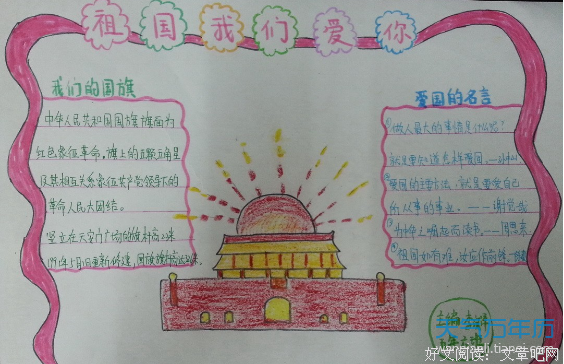 祖国我们爱你
我们的国旗
中华人民共和国国旗旗面为
红色象征革命,旗上的五颗五角星
及其相互关系象征共产党领导下的
革命人民大团结。
坚立在天安门广场的
爱国的名言
①做人最大的事情是什么呢?
就是要知道怎样爱国
爱国的主要方法,就是要爱自己
所从事的事业。---谢觉哉
为中华之崛起而读书。---周恩来
祖国如有难,汝应作前锋
天气万年历
好文阅读:文章吧网